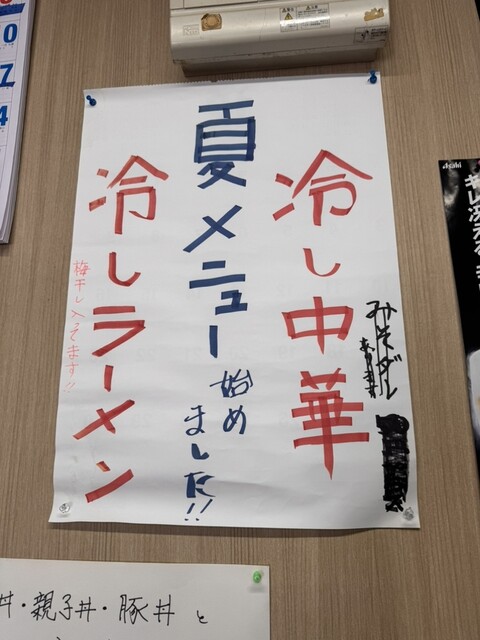 冷し中華
みそダレ
あります
夏メニュー始め
ました!!
冷しラーメン
梅干し入ってます!!
Asahi
キレ冴える
丼・親子丼・豚丼 と
0
7
4